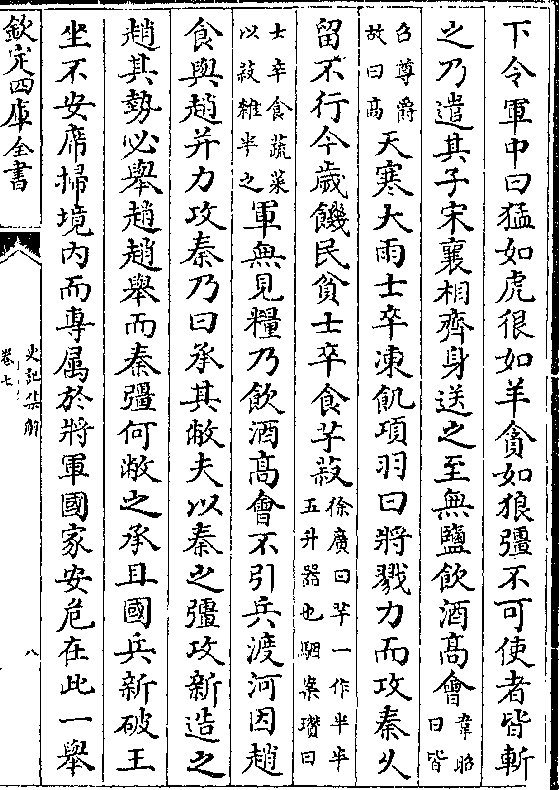 下令軍中曰猛如虎很如羊貪如狼彊不可使者皆斬
之乃遣其子宋襄相齊身送之至無鹽飲酒髙會韋昭曰皆
召尊爵故曰髙天寒大雨士卒凍飢項羽曰將戮力而攻秦乆
留不行今歳饑民貧士卒食芋菽徐廣曰芋一作半半五升器也駰案瓚曰
士卒食蔬菜以菽雜半之軍無見糧乃飲酒髙會不引兵渡河因趙
食與趙并力攻秦乃曰承其敝夫以秦之彊攻新造之
趙其勢必舉趙趙舉而秦彊何敝之承且國兵新破王
坐不安席掃境内而専属於將軍國家安危在此一舉
欽定四庫全書
史記集解
卷七
八